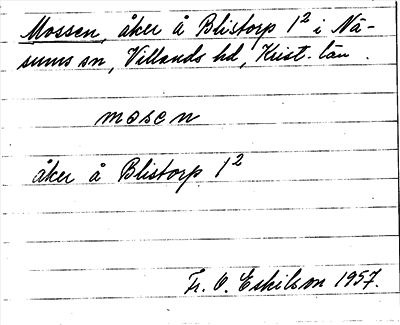 Mossen, åker å Blistorp 1² i Nä-
sums sn, Villands hd, Krist. län.
mosen
åker å Blistorp 1²
Fr. O. Eskilson 1957.